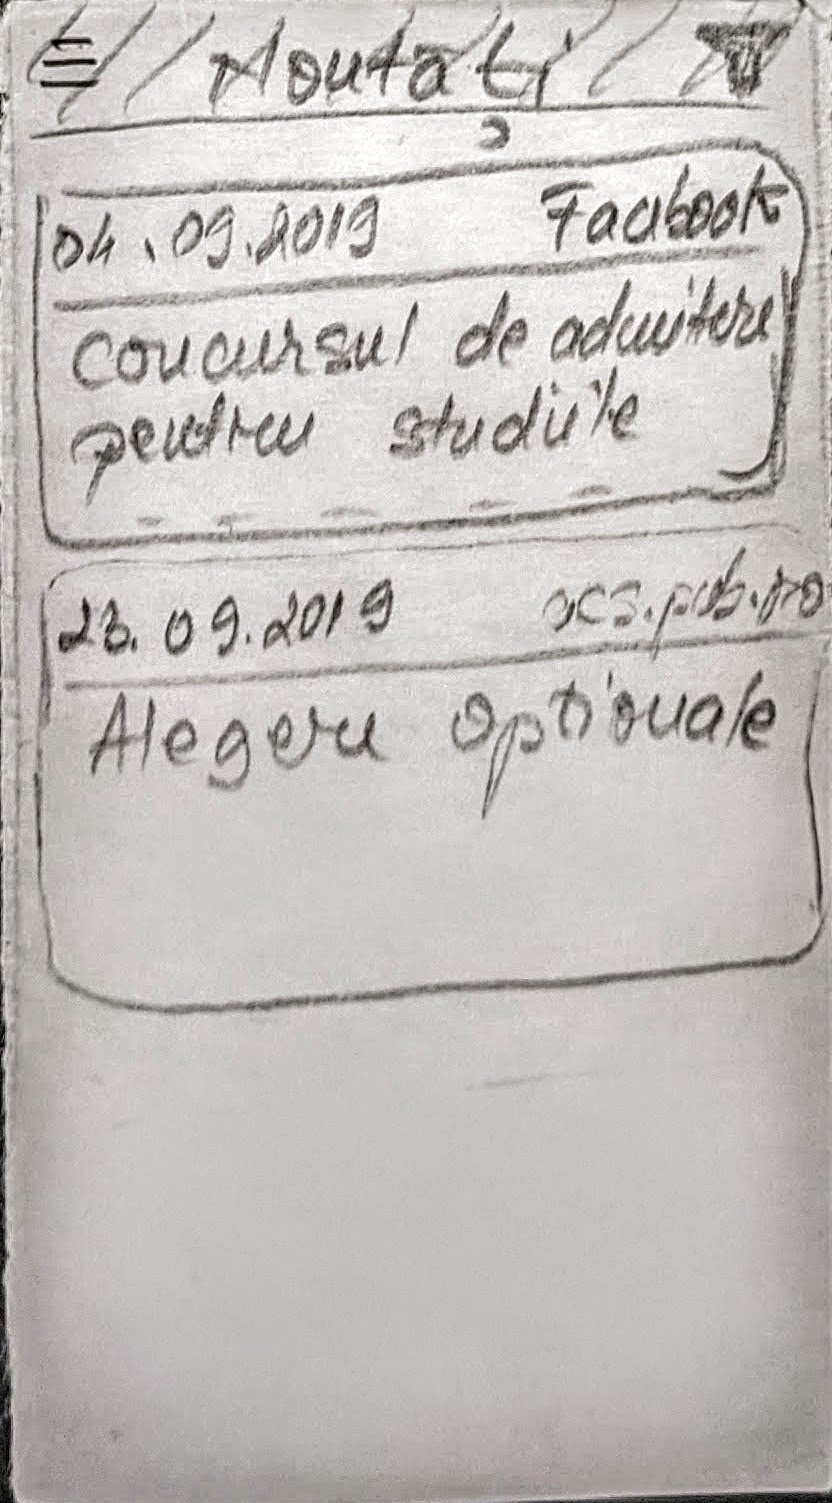 Noutăți
04.09.2019 Facebook
Concursul de admitere
pentru studiile
23.09.2019 acs.pub.ro
Alegere opționale